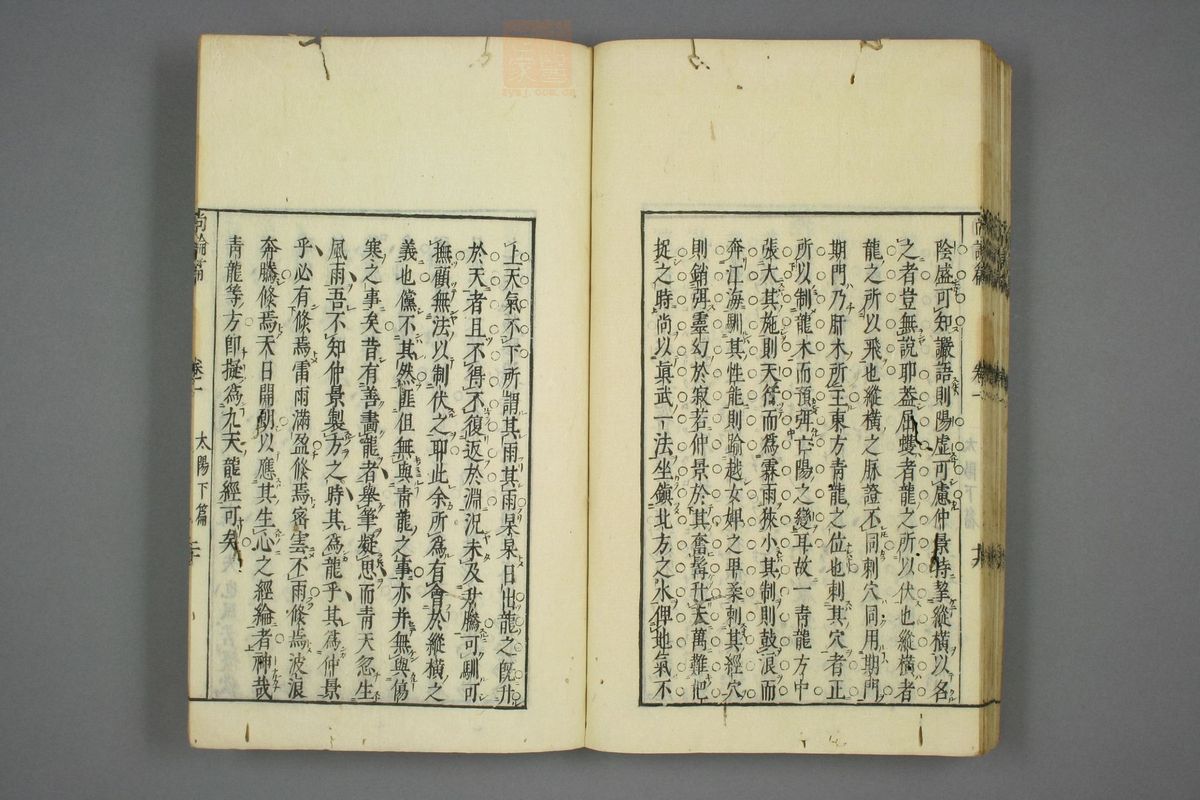 陰盛可知譫語則陽虛可慮仲景特挈縱橫以名
之者豈無說耶蓋屈蠖者龍之所以伏也縱橫者
龍之所以飛也縱橫之脉證不同刺穴同用期門
期門乃肝木所王東方青龍之位也刺其穴者正
所以制龍木而預弭亡陽之變耳故一青龍方中
張大其施則天行而為霖雨狹小其制則鼓浪而
奔江海馴其性能則踰越女妲之卑柔刺其經穴
則銷弭靈幻於寂若仲景於其奮髯升天萬難把
捉之時尚以眞武一法坐鎭北方之水俾地氣不
上天氣不下所謂其雨其雨杲杲日出龍之旣升
於天者且不得不復返於淵況未及升騰可馴可
撫顧無法以制伏之耶此余所為有會於縱橫之
義也儻不其然匪但無與青龍之事亦并無與傷
寒之事矣昔有善畫龍者舉筆凝思而青天忽生
風雨吾不知仲景製方之時其為龍乎其為仲景
乎必有倐焉雷雨滿盈倐焉密雲不雨倐焉波浪
奔騰倐焉天日開朗以應其生心之經綸者神哉
青龍等方卽擬為九天龍經可矣
尚論篇
卷一
太陽下篇